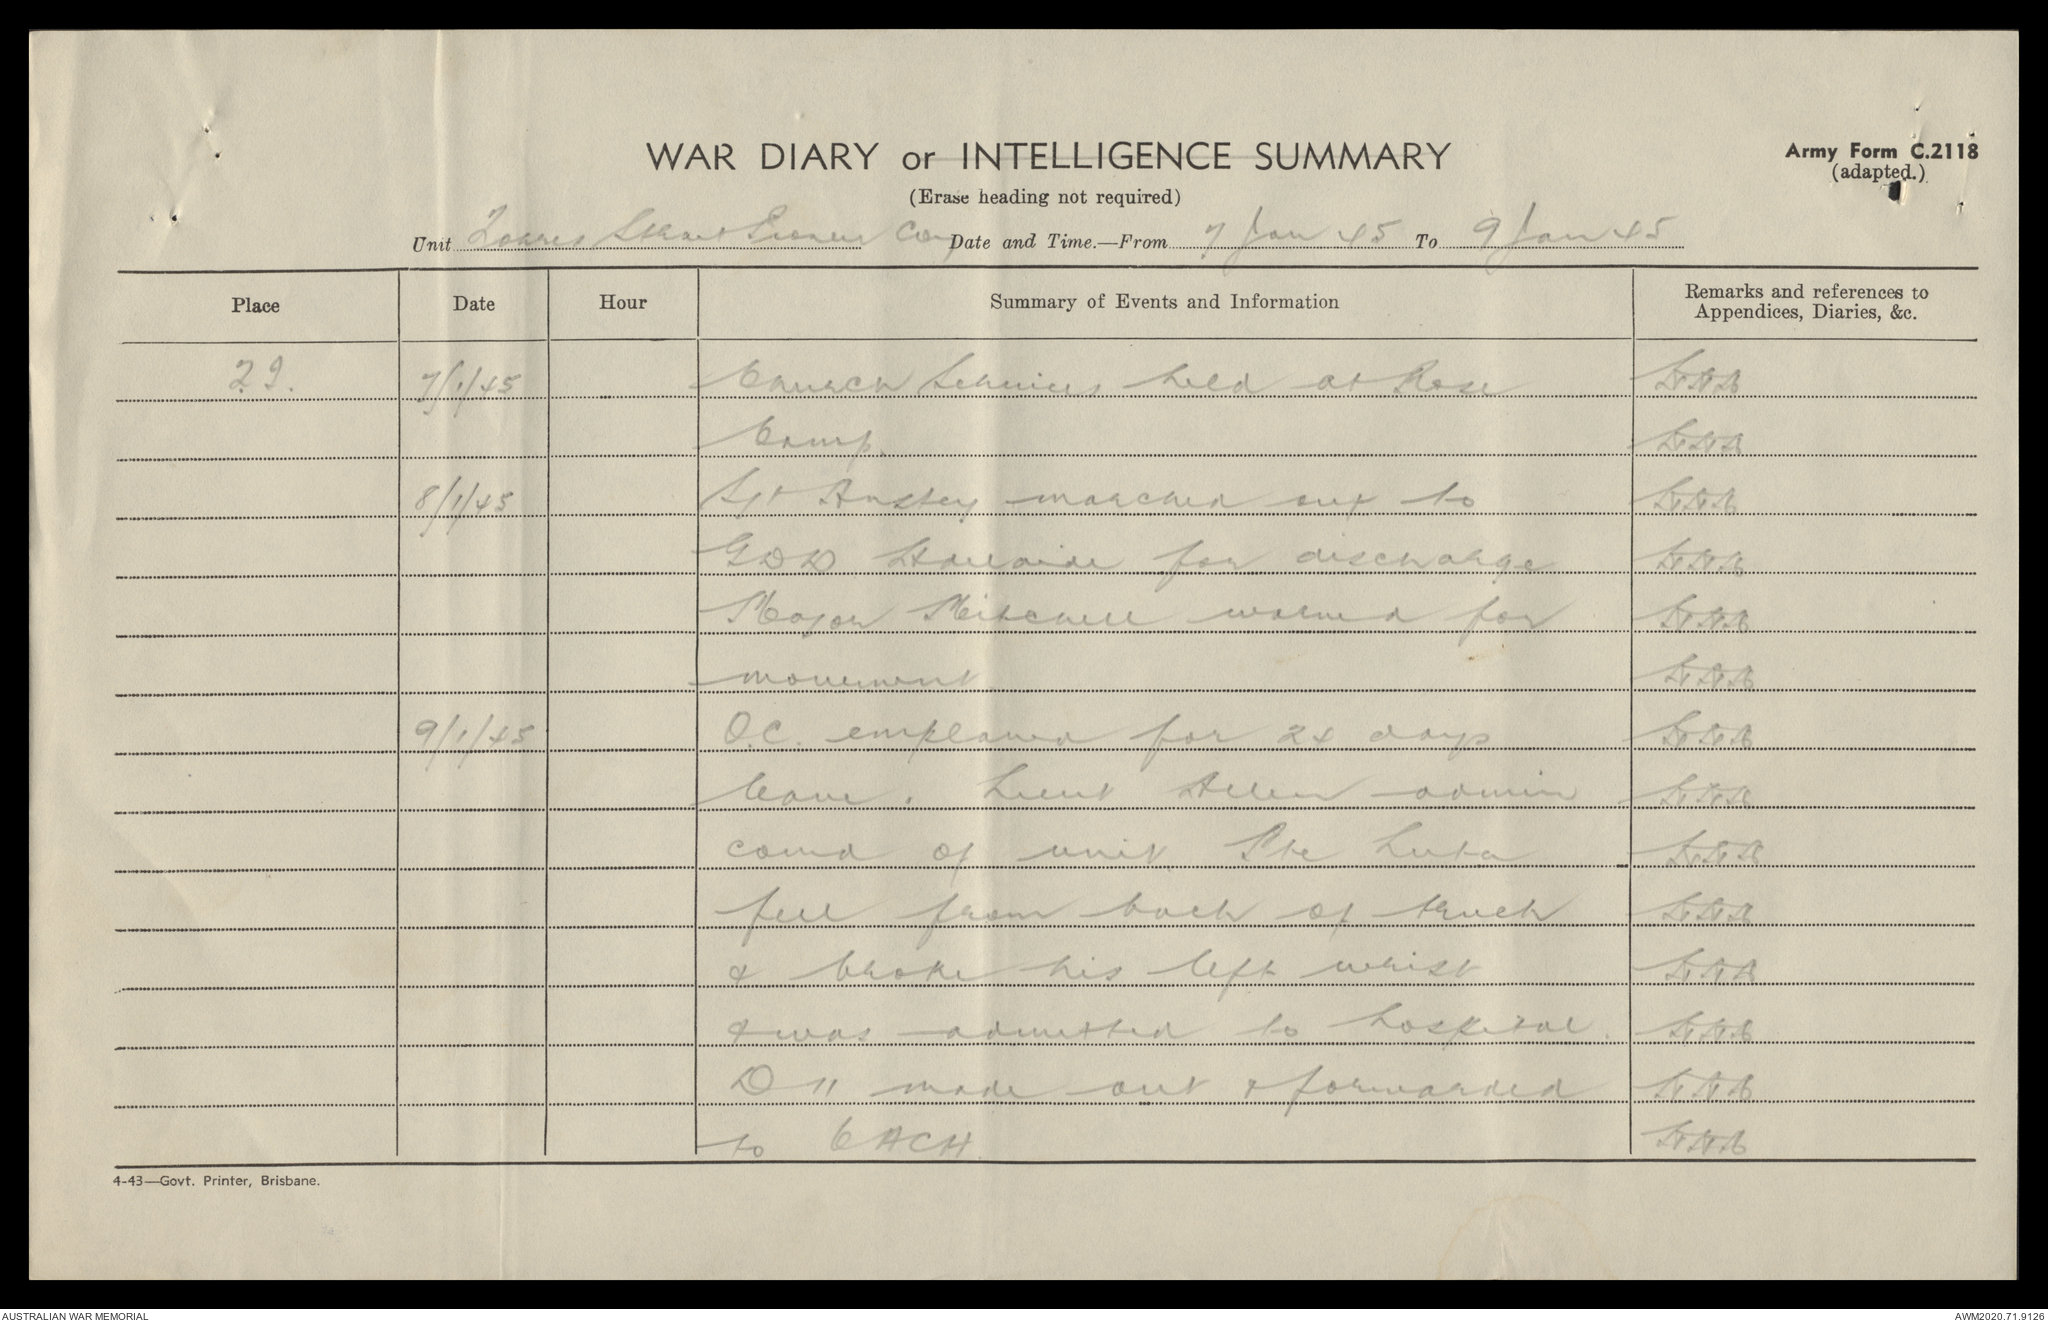 WAR DIARY or INTELLIGENCE SUMMARY
Army Form C.2118
(adapted.)
(Erase heading not required)
Unit Torres Strait Pioneer Coy Date and Time.—From 7 Jan 45 To 9 Jan 45
Place Date Hour Summary of Events and Information Remarks and references to Appendices, Diaries, &c.
T.I. 7/1/45 Church Services held at Rose
Camp.
8/1/45 Sgt Anstey marched out to
GDD Adelaide for discharge
Major Mitchell warned for
movement
9/1/45 O.C. emplaned for 24 days
leave. Lieut Allen admin
comd of unit Pte Luta
fell from back of truck
& broke his left wrist
& was admitted to hospital.
D 11 made out & forwarded
to CACH.
4-43—Govt. Printer, Brisbane.
AUSTRALIAN WAR MEMORIAL
AWM2020.71.9126